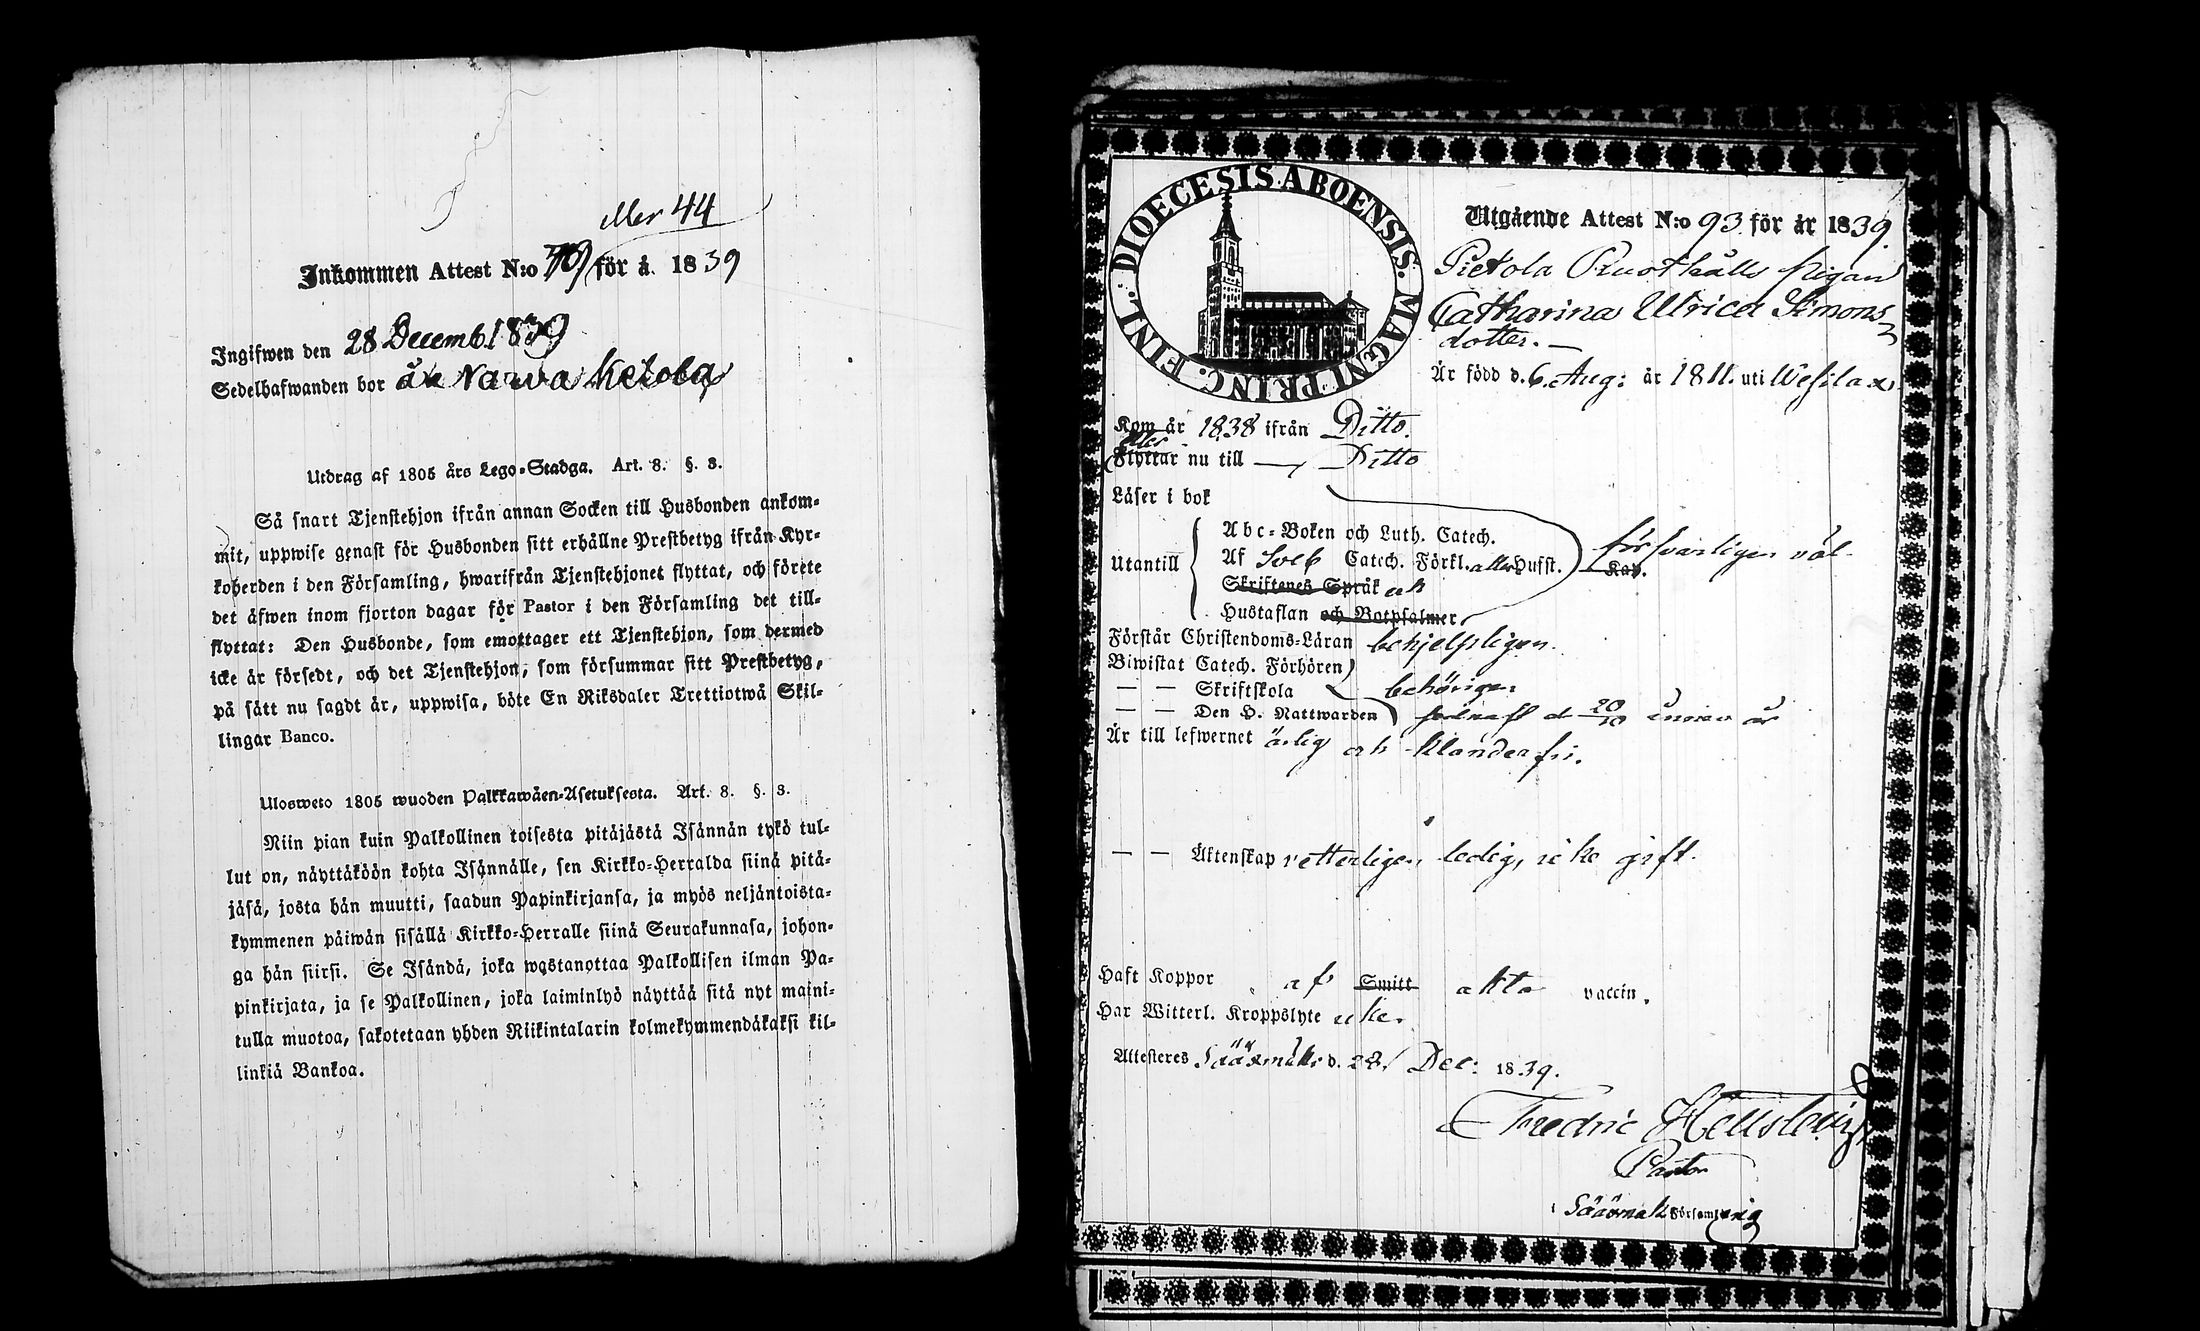 eller 44
Inkommen Attest N:o för å. 1839
Ingifwen den 28 Decemb. 1839
Sedelhafwanden bor å Narva Ketola
Utdrag af 1805 års Lego-Stadga. Art. 8. §. 3.
Så snart Tjenstehjon ifrån annan Socken till Husbonden ankom-
mit, uppwise genast för Husbonden sitt erhållne Prestbetyg ifrån Kyr-
koherden i den Församling, hwarifrån Tjenstehjonet flyttat, och förete
det äfwen inom fjorton dagar för Pastor i den Församling det till-
flyttat: Den Husbonde, som emottager ett Tjenstehjon, som dermed
icke är försedt, och det Tjenstehjon, som försummar sitt Prestbetyg,
på sätt nu sagdt är, uppwisa, böte En Riksdaler Trettiotwå Skil-
lingar Banco.
Ulosweto 1805 wuoden Palkkawäen-Asetuksesta. Art. 8. §. 3.
Niin pian kuin Palkollinen toisesta pitäjästä Isännän tykö tul-
lut on, näyttäköön kohta Isännälle, sen Kirkko-Herralda siinä pitä-
jäsä, josta hän muutti, saadun Papinkirjansa, ja myös neljäntoista-
kymmenen päiwän sisällä Kirkko-Herralle siinä Seurakunnasa, johon-
ga hän siirsi. Se Isändä, joka wastanottaa Palkollisen ilman Pa-
pinkirjata, ja se Palkollinen, joka laiminlyö näyttää sitä nyt maini-
tulla muotoa, sakotetaan yhden Riikintalarin kolmekymmendäkaksi kil-
linkiä Bankoa.
DIOECESIS ABOENSIS. MAGNI PRINC. FINL.
Utgående Attest N:o 93 för år 1839.
Pietola Rusthålls pigan
Catharina Ulrica Simons
dotter. —
Är född d. 6. Aug: år 1811. uti Wesilax
Kom år 1838 ifrån Ditto.
eller
Flyttar nu till — Ditto
Läser i bok
Abc-Boken och Luth. Catech.
Utantill Af Sveb Catech. Förkl. alla Hufst. Kap. försvarligen väl
Skriftenes Språk och
Hustaflan och Botpsalmer
Förstår Christendoms-Läran behjelpligen.
Biwistat Catech. Förhören
— — Skriftskola behörigen
— — Den H. Nattwarden d 20/10 innev. år
Är till lefwernet ärlig och klanderfri.
— — Äktenskap vetterligen ledig, icke gift.
Haft Koppor af Smitt äkta vaccin.
Har Witterl. Kroppslyte icke.
Attesteres Sääxmäki d. 28 Dec: 1839.
Fredric
Pastor
i Sääxmäki Församling